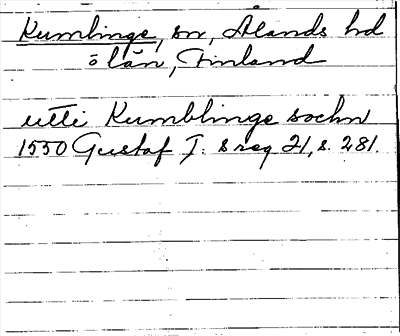 Kumlinge, sn, Ålands hd
o län, Finland
utti Kumblinge sochn
1550 Gustaf I:s reg 21, s. 281